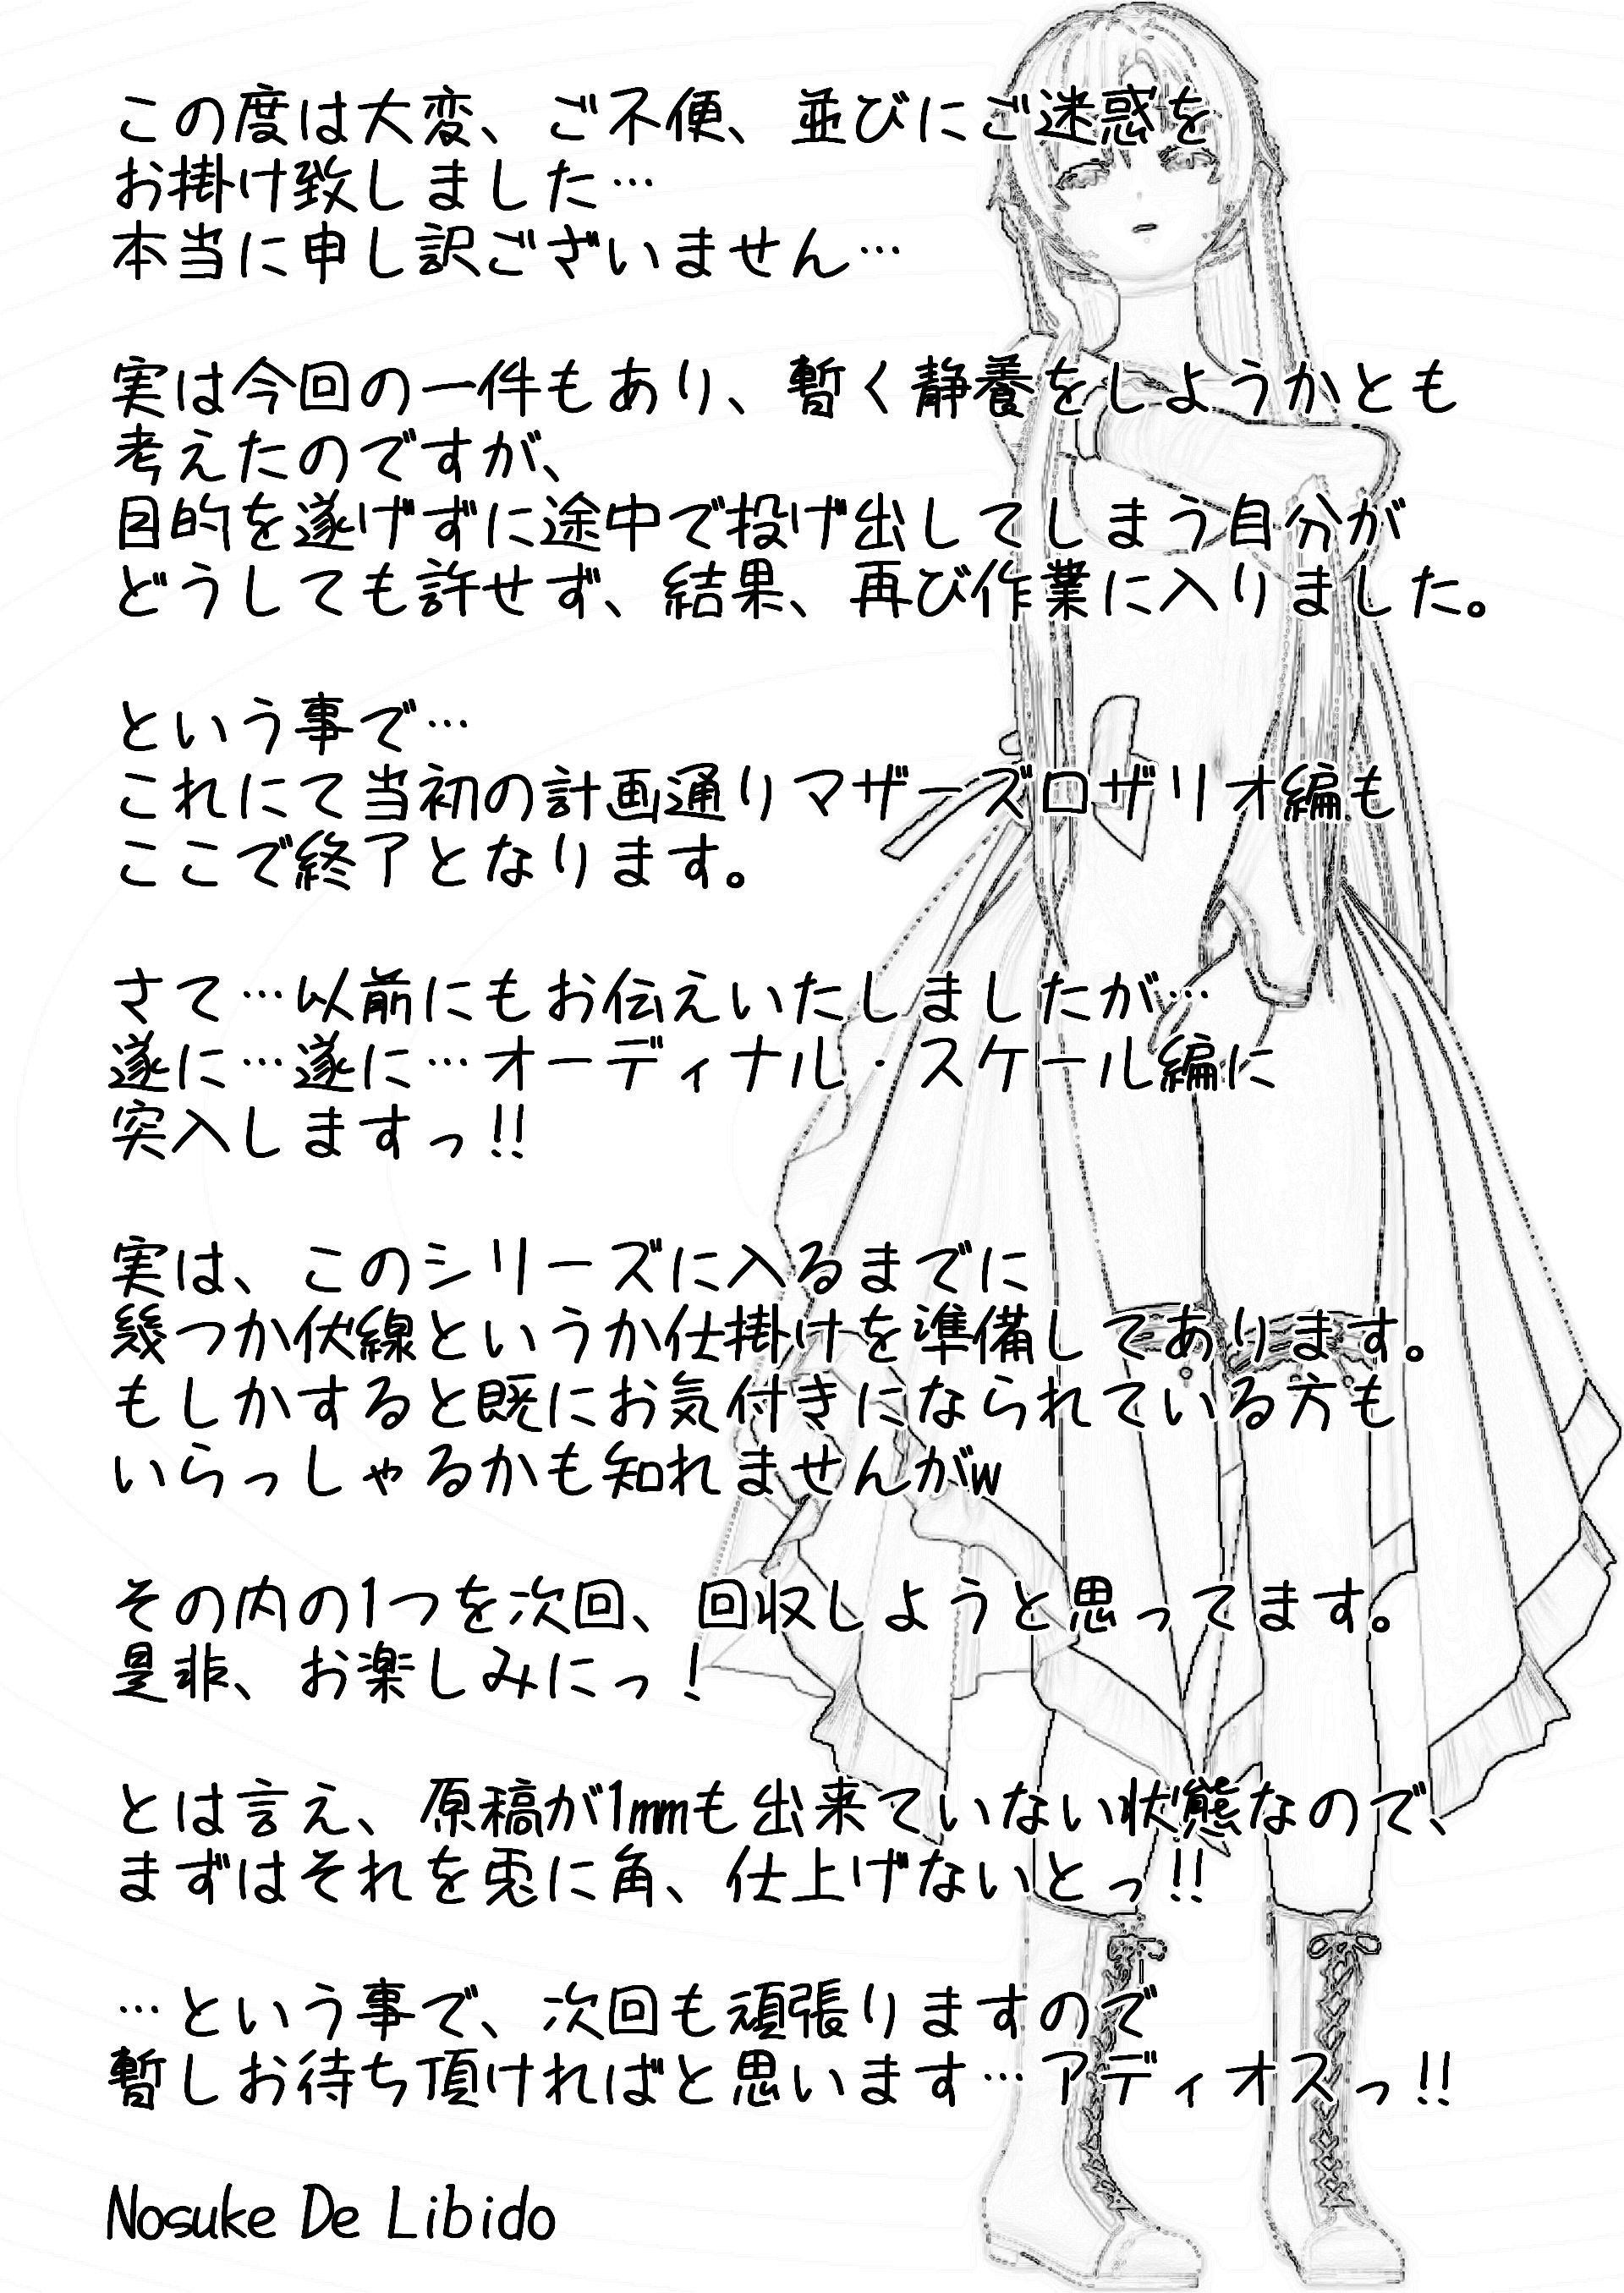 この度は大変、ご不便、並びにご迷惑を
お掛け致しました…
本当に申し訳ございません…
実は今回の一件もあり、暫く静養をしようかとも
考えたのですが、
目的を遂げずに途中で投げ出してしまう自分が
どうしても許せず、結果、再び作業に入りました。
という事で…
これにて当初の計画通りマザーズロザリオ編も
ここで終了となります。
さて…以前にもお伝えいたしましたが…
遂に…遂に…オーディナル・スケール編に
突入しますっ!!
実は、このシリーズに入るまでに
幾つか伏線というか仕掛けを準備してあります。
もしかすると既にお気付きになられている方も
いらっしゃるかも知れませんがw
その内の1つを次回、回収しようと思ってます。
是非、お楽しみにっ!
とは言え、原稿が1mmも出来ていない状態なので、
まずはそれを兎に角、仕上げないとっ!!
…という事で、次回も頑張りますので
暫しお待ち頂ければと思います…アディオスっ!!
Nosuke De Libido